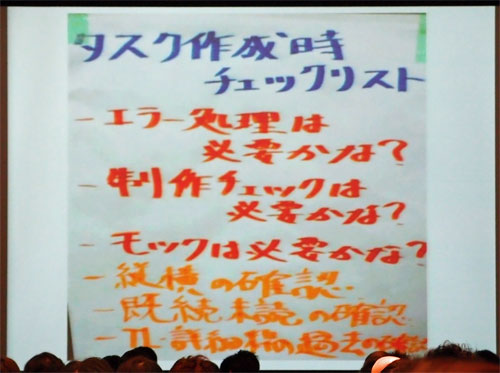 タスク作成時
チェックリスト
- エラー処理は
必要かな?
- 制作チェックは
必要かな?
- モックは必要かな?
- 縦横の確認
- 既続未読の確認
の過去の確認